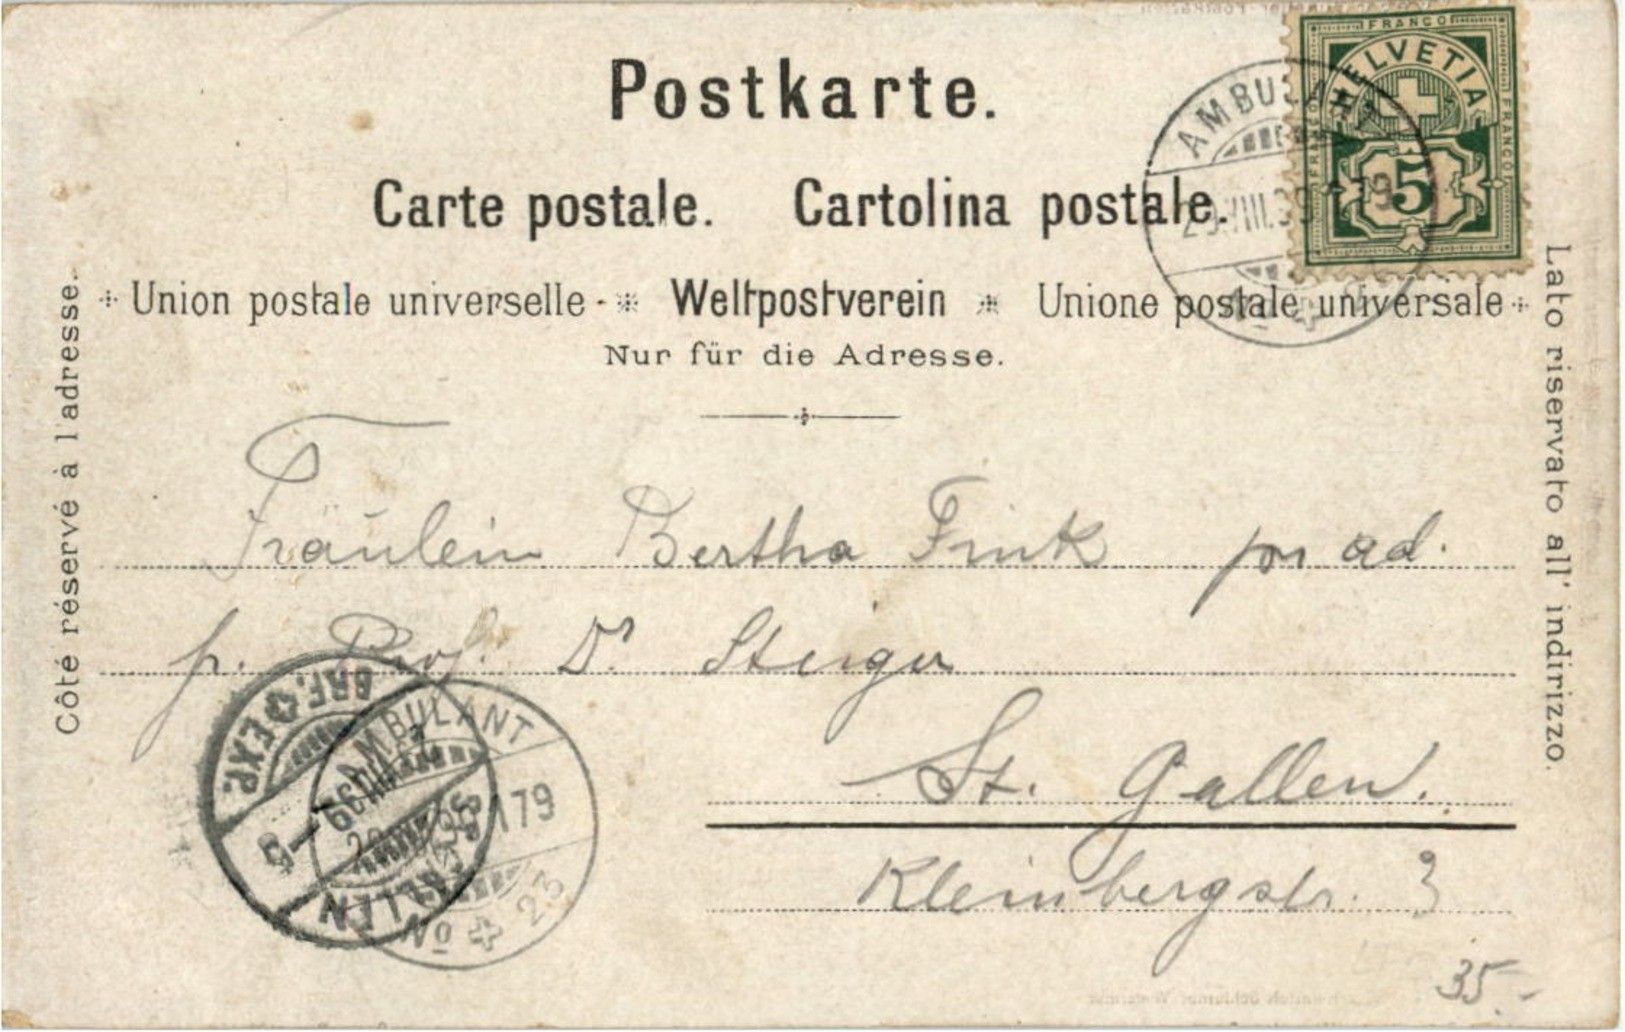 Postkarte.
Carte postale. Cartolina postale.
Union postale universelle - Weltpostverein Unione postale universale
Nur für die Adresse.
Côté réservé à l'adresse.
Lato riservato all' indirizzo.
FRANCO
HELVETIA
FRANCO
5
AMBULANT
179
Fräulein Bertha Fink ad.
p. Prof. Dr Steiger
St. Gallen.
Kleinbergstr. 3
BRF. EXP.
ST. GALLEN
AMBULANT
179
No 23
35.-